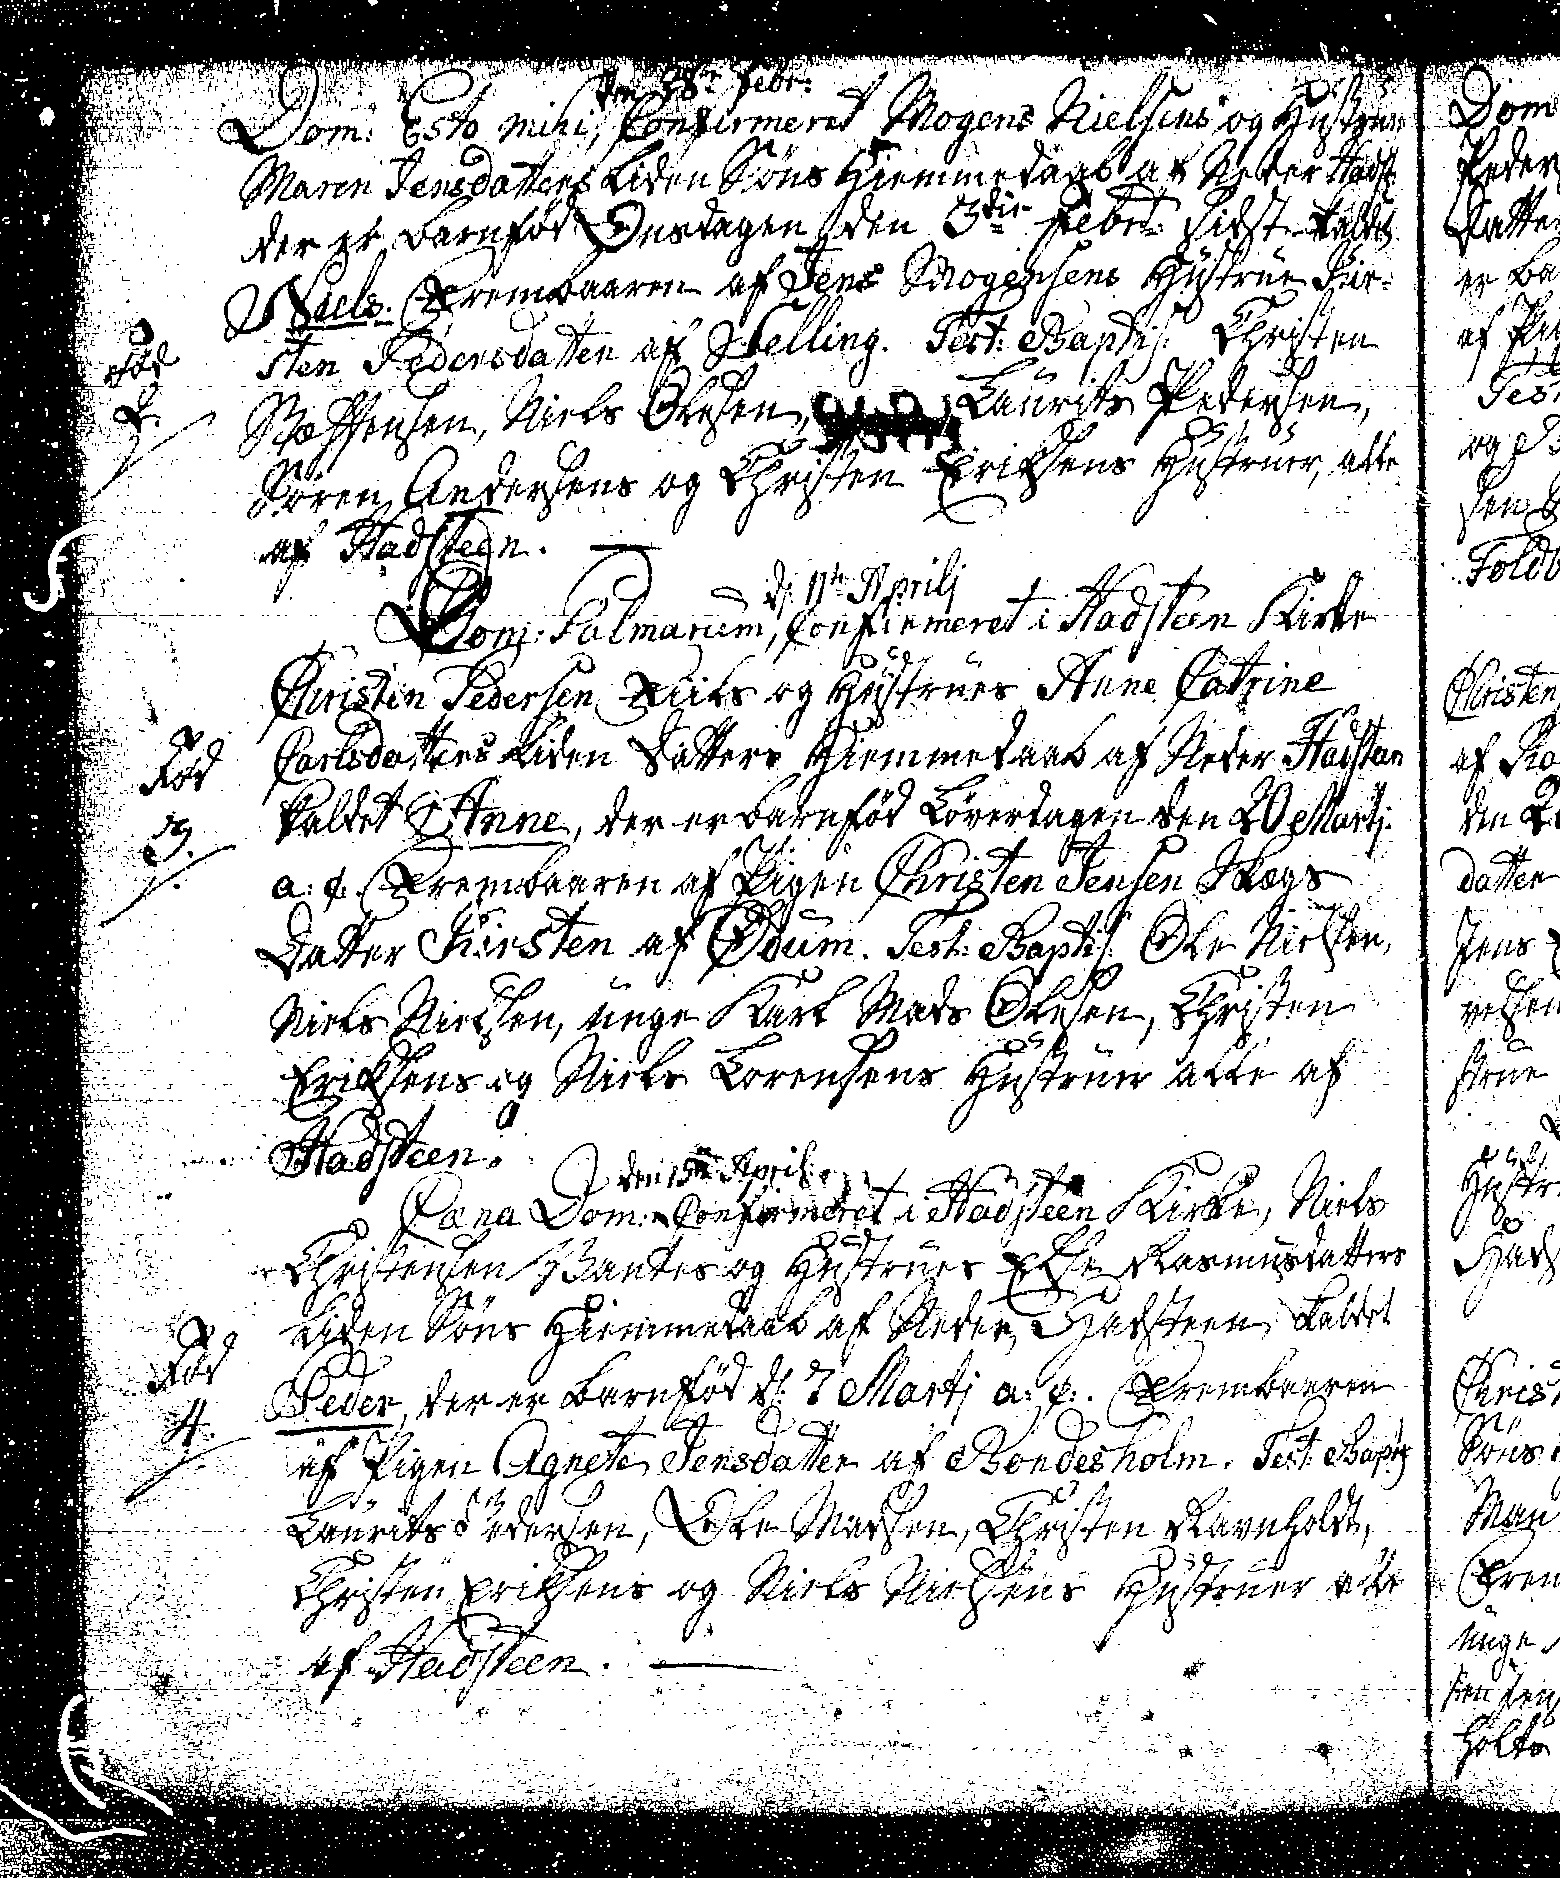 den 28de Febr:
Dom: Esto mihi, Confirmeret Mogens Nielsens og Hustrues
Maren Jensdatters liden Søns Hiemmedaab af Neder Hadst:
der er barnfød Onsdagen den 3die Febr: sidst kaldet
Niels. Frembaaren af Jens Mogensens Hustrue Kir-
sten Pedersdatter af Selling. Test: Baptis: Christen
Steffensen, Niels Olesen, Laurits Pedersen,
Sören Andersens og Christen Eriksens Hustruer, alle
af Hadsteen.
Fød
2.
d: 11te Aprilj
Dom: Palmarum, Confirmeret i Hadsteen Kirke
Christen Pedersen og Hustrues Anne Catrine
Carlsdatters liden Datters Hiemmedaab af Neder Hadsteen
kaldet Anne, der er barnfød Löverdagen den 20 Martj:
a: c: Frembaaren af Pigen Christen Jensen Skogs
Datter Kirsten af Ødum. Test: Baptis: Ole Nielsen,
Niels Nielsen, unge Karl Mads Olesen, Christen
Eriksens og Niels Lorensens Hustruer alle af
Hadsteen.
Fød
3.
den 15de April:
Cæna Dom: Confirmeret i Hadsteen Kirke, Niels
Christensen og Hustrues Else Rasmusdatters
liden Søns Hiemmedaab af Neder Hadsteen, kaldet
Peder, der er barnfød d: 7 Martj a: c:. Frembaaren
af Pigen Agnete Jensdatter af Bondesholm. Test: Baptis
Laurits Pedersen, Ole Madsen, Christen Ravnholdt,
Christen Eriksens og Niels Nielsens Hustruer alle
af Hadsteen.
Fød
4.
Dom
Peder
Datter
er ba
af
Test
og
sen
Foldb
Christen
af
den 2
datter
Jens
strue
Hustr
Hads
Christ
Søns
Man
Frem
unge
holts